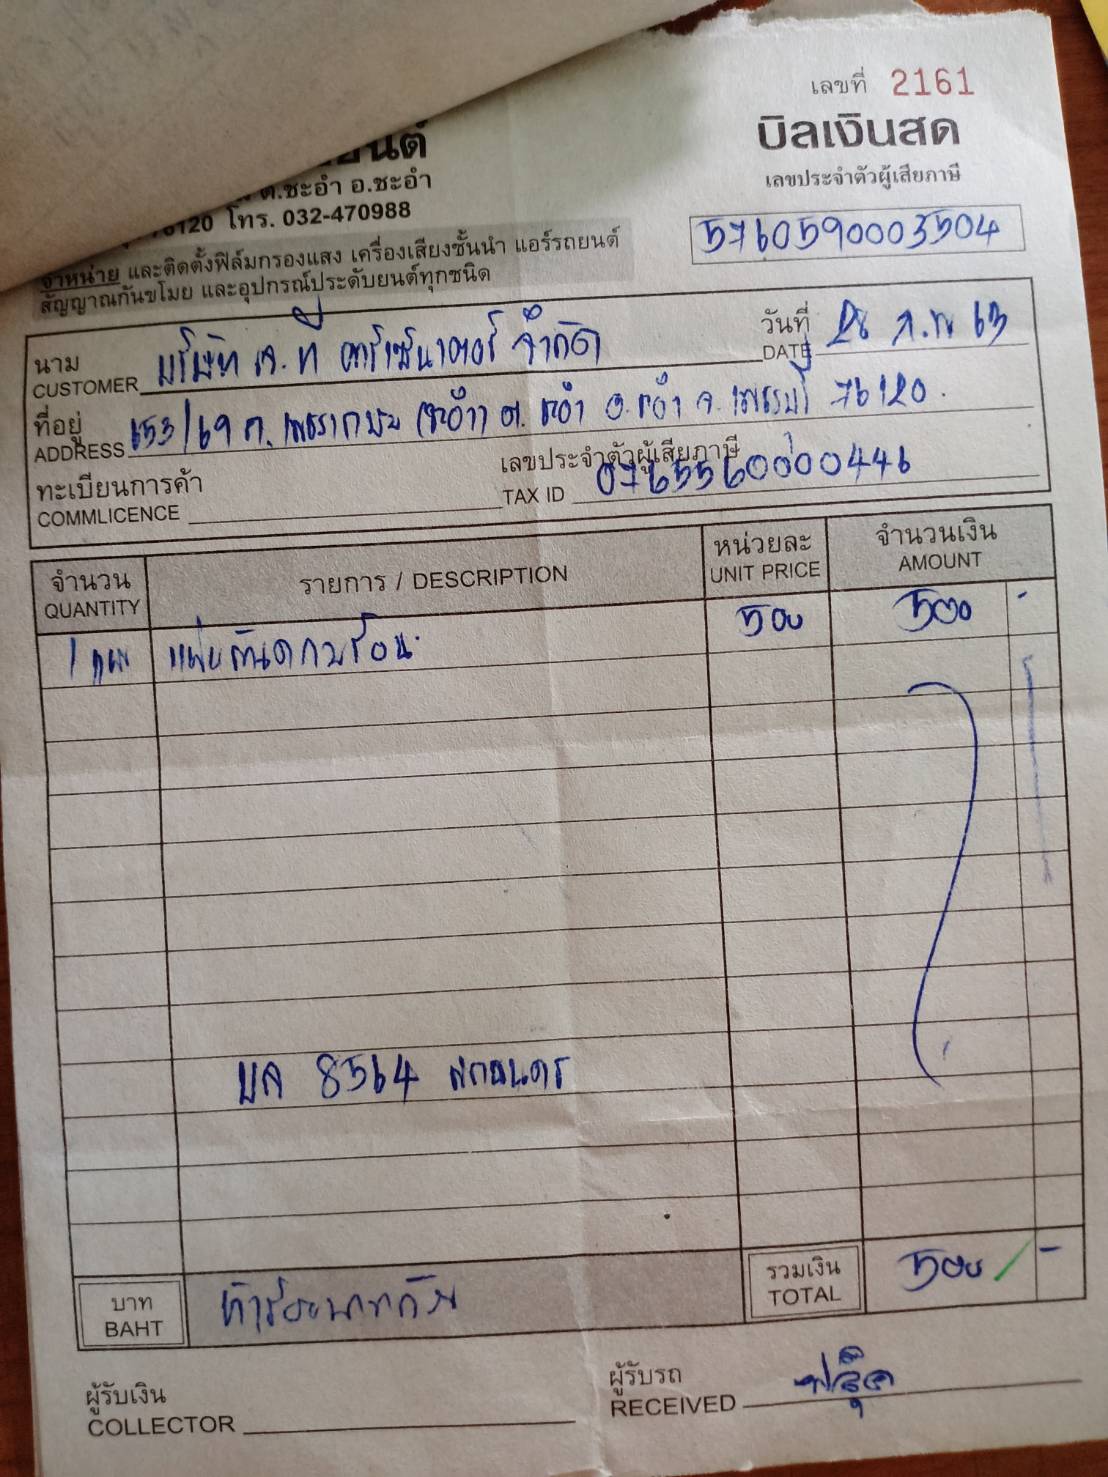 เลขที่ 2161
ยนต์
บิลเงินสด
ต.ชะอำ อ.ชะอำ
เลขประจำตัวผู้เสียภาษี
โทร. 032-470988
5760590003504
จำหน่าย และติดตั้งฟิล์มกรองแสง เครื่องเสียงชั้นนำ แอร์รถยนต์
สัญญาณกันขโมย และอุปกรณ์ประดับยนต์ทุกชนิด
นาม บริษัท เจ. ที คาร์เซ็นเตอร์ จำกัด วันที่ 28 ก.พ 63
CUSTOMER DATE
ที่อยู่ 653/69 ถ.เพชรเกษม (ชะอำ) ต. ชะอำ อ.ชะอำ จ.เพชรบุรี 76120.
ADDRESS
ทะเบียนการค้า เลขประจำตัวผู้เสียภาษี
COMMLICENCE TAX ID 0765560000446
จำนวน รายการ / DESCRIPTION หน่วยละ จำนวนเงิน
QUANTITY UNIT PRICE AMOUNT
1 แผ่น แผ่นกันความร้อน 500 500 -
บล 8564 สกลนคร
บาท ห้าร้อยบาทถ้วน รวมเงิน 500 -
BAHT TOTAL
ผู้รับเงิน ผู้รับรถ
COLLECTOR RECEIVED